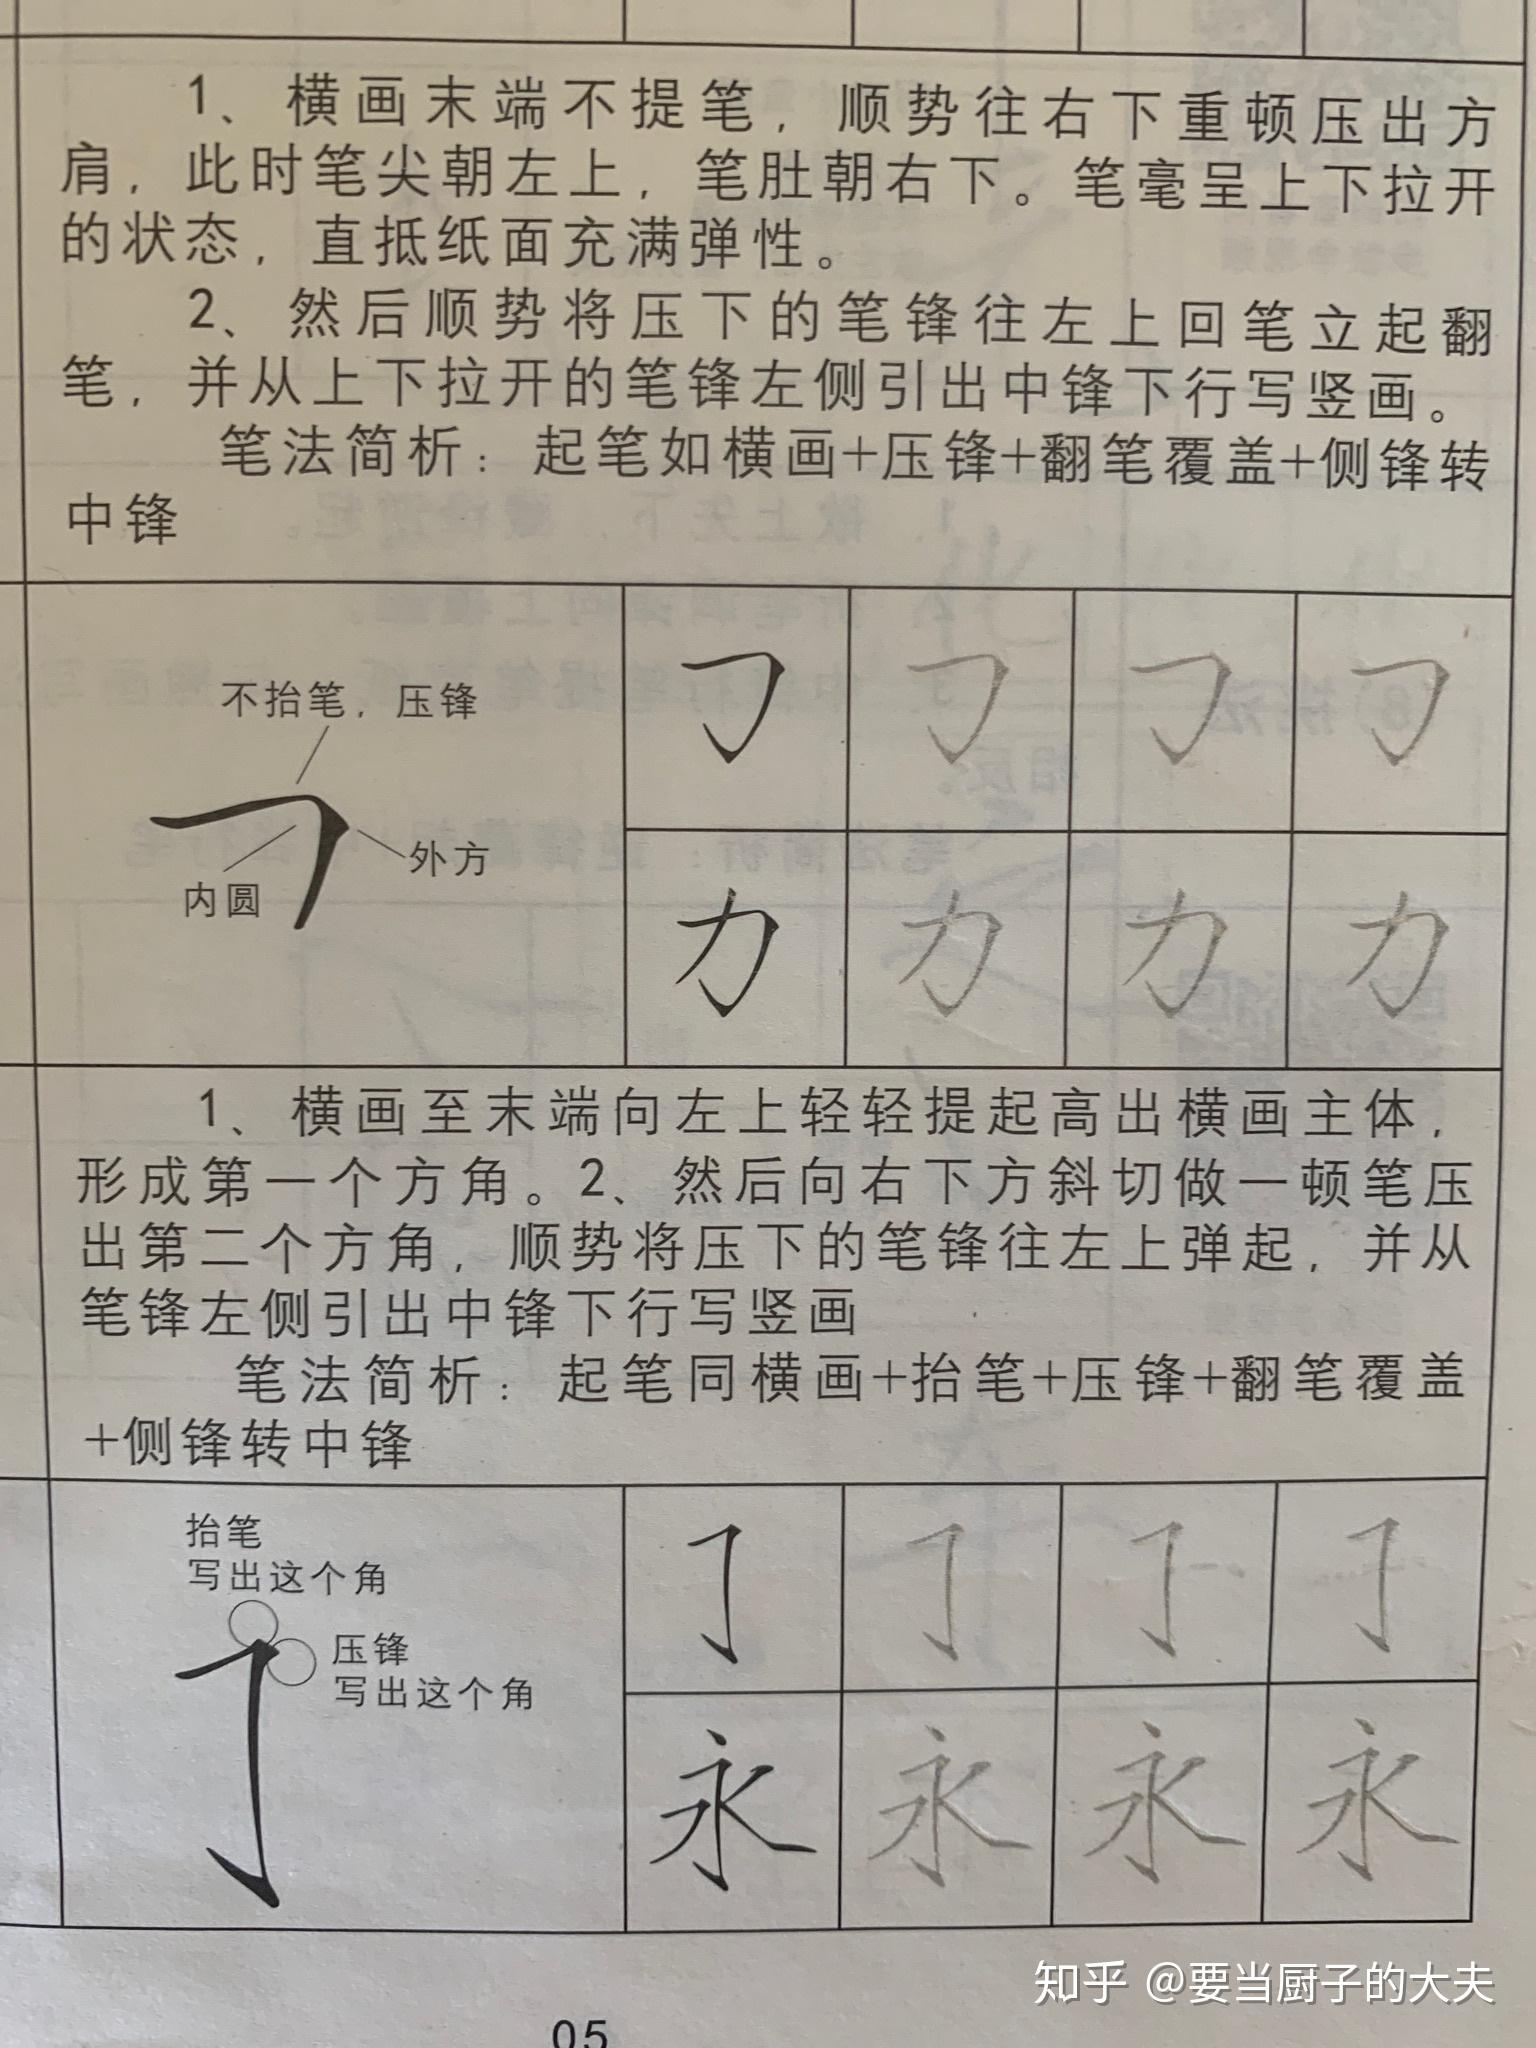 1、横画末端不提笔，顺势往右下重顿压出方
肩，此时笔尖朝左上，笔肚朝右下。笔毫呈上下拉开
的状态，直抵纸面充满弹性。
2、然后顺势将压下的笔锋往左上回笔立起翻
笔，并从上下拉开的笔锋左侧引出中锋下行写竖画。
笔法简析：起笔如横画+压锋+翻笔覆盖+侧锋转
中锋
不抬笔，压锋
外方
内圆
力 力 力 力
1、横画至末端向左上轻轻提起高出横画主体，
形成第一个方角。2、然后向右下方斜切做一顿笔压
出第二个方角，顺势将压下的笔锋往左上弹起，并从
笔锋左侧引出中锋下行写竖画
笔法简析：起笔同横画+抬笔+压锋+翻笔覆盖
+侧锋转中锋
抬笔
写出这个角
压锋
写出这个角
永 永 永 永
知乎 @要当厨子的大夫
05